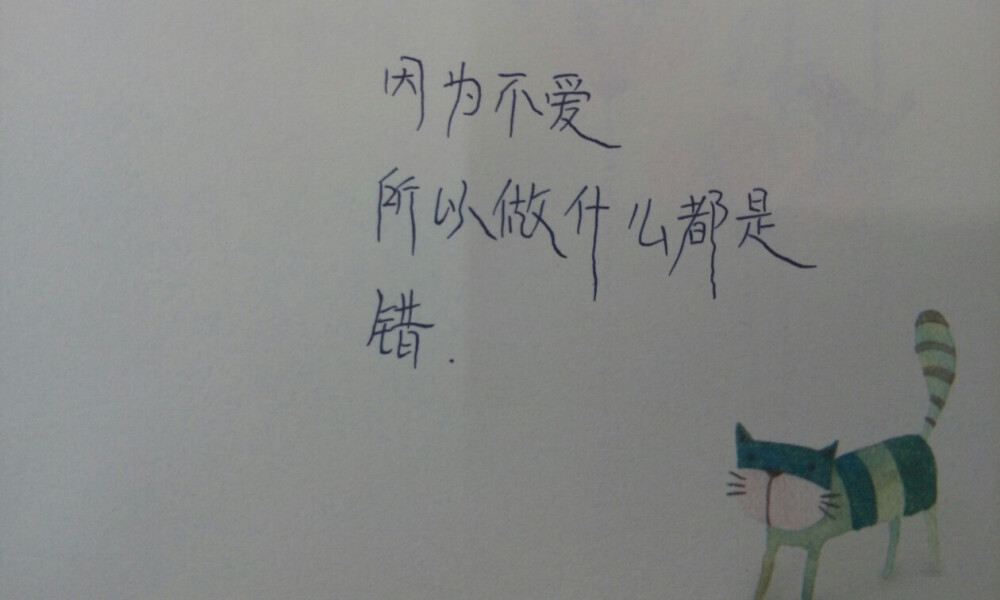 因为不爱
所以做什么都是
错.